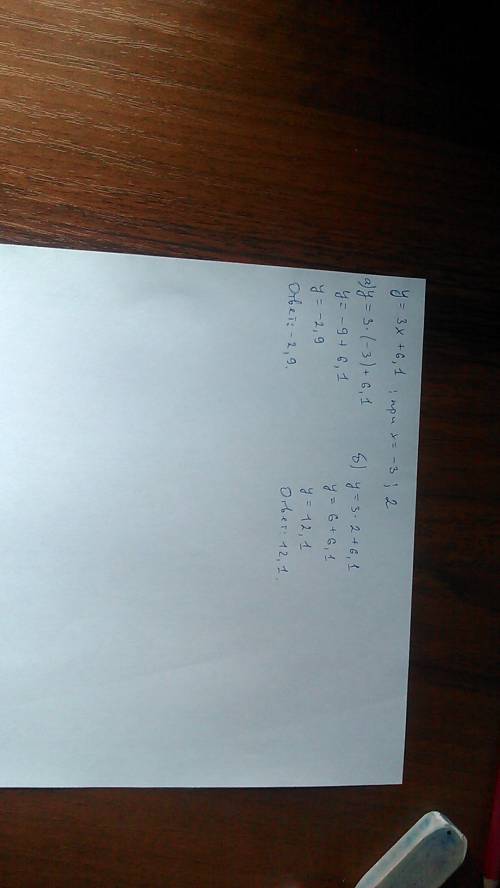 y = 3x + 6,1 ; при x = -3 ; 2
а) y = 3·(-3) + 6,1
y = -9 + 6,1
y = -2,9
Ответ: -2,9.
б) y = 3·2 + 6,1
y = 6 + 6,1
y = 12,1
Ответ: 12,1.